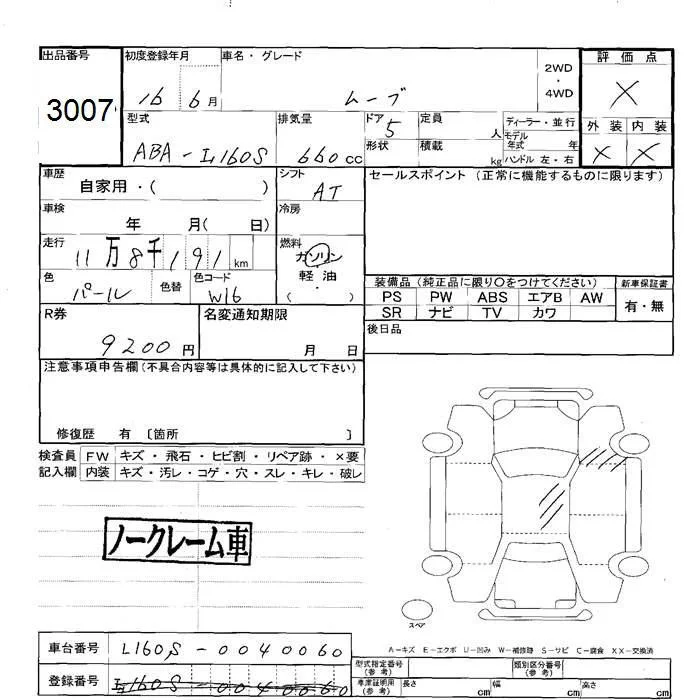 出品番号 初度登録年月 車名・グレード 2WD・4WD 評価点
3007 16 6月 ムーブ X
型式 排気量 ドア 定員 ディーラー・並行 外装 内装
ABA-L160S 660cc 5 人 モデル年式 年 X X
形状 積載 kg ハンドル 左・右
車歴 シフト セールスポイント (正常に機能するものに限ります)
自家用・( ) AT
車検 冷房
年 月( 日)
走行 燃料
11万8千191km ガソリン
色 色替 色コード 軽油
パール W16 ( ・ )
装備品 (純正品に限り○をつけてください) 新車保証書
PS PW ABS エアB AW 有・無
SR ナビ TV カワ
R券 名変通知期限 後日品
9200円 月 日
注意事項申告欄(不具合内容等は具体的に記入して下さい)
修復歴 有 〔箇所 〕
検査員 FW キズ・飛石・ヒビ割・リペア跡・×要
記入欄 内装 キズ・汚レ・コゲ・穴・スレ・キレ・破レ
ノークレーム車
スペア
A-キズ E-エクボ U-凹み W-補修跡 S-サビ C-腐食 XX-交換済
車台番号 L160S-0040060
型式指定番号(参考) 類別区分番号(参考)
登録番号 L160S-0040060
車庫証明用(参考) 長さ cm 幅 cm 高さ cm